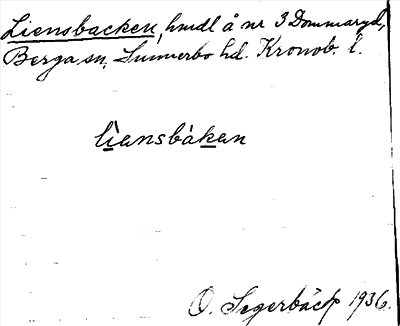 Liensbacken, hmdl å nr 3 Dommaryd,
Berga sn, Sunnerbo hd. Kronob. l.
lìensbàken
O. Segerbäck 1936.